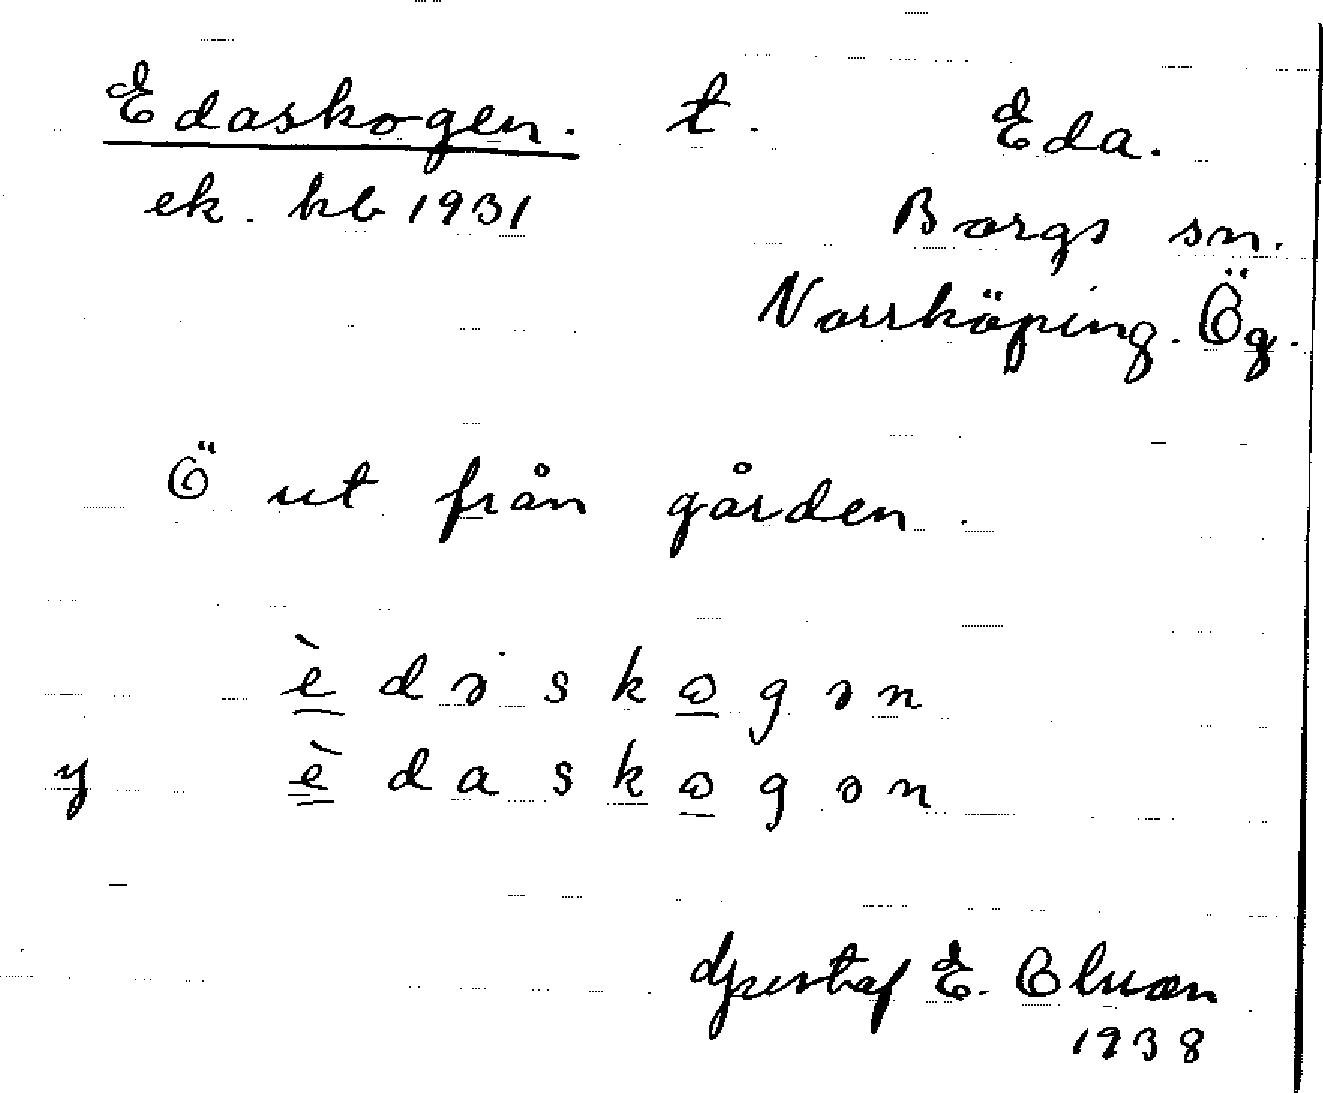 Edaskogen. t. Eda.
ek. kb 1931 Borgs sn.
Norrköping. Ög.
Ö ut från gården.
è d ə s k ω g ə n
y è d a s k ω g ə n
Gustaf E.
1938